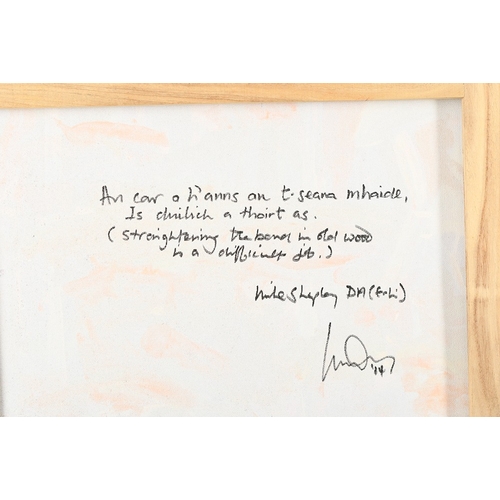 An car a h'anns an t-seana mhaide,
Is duilich a thoirt as.
(Straightening the bend in old wood
is a difficult job.)
Mike Shepley DA (Edin)
'14